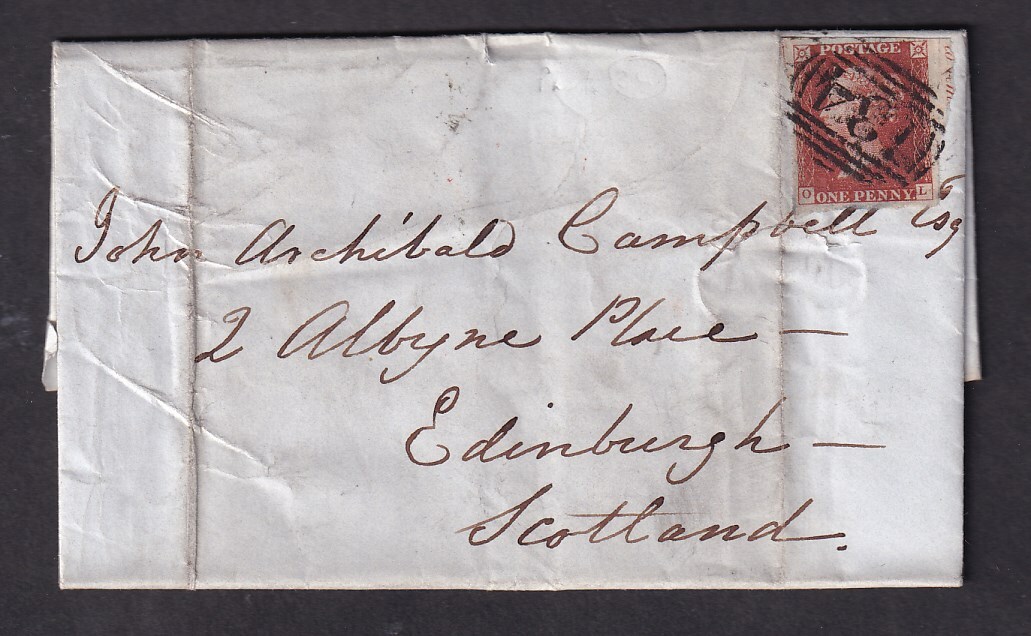 POSTAGE
O ONE PENNY L
John Archibald Campbell Esq
2 Albyne Place —
Edinburgh —
Scotland.